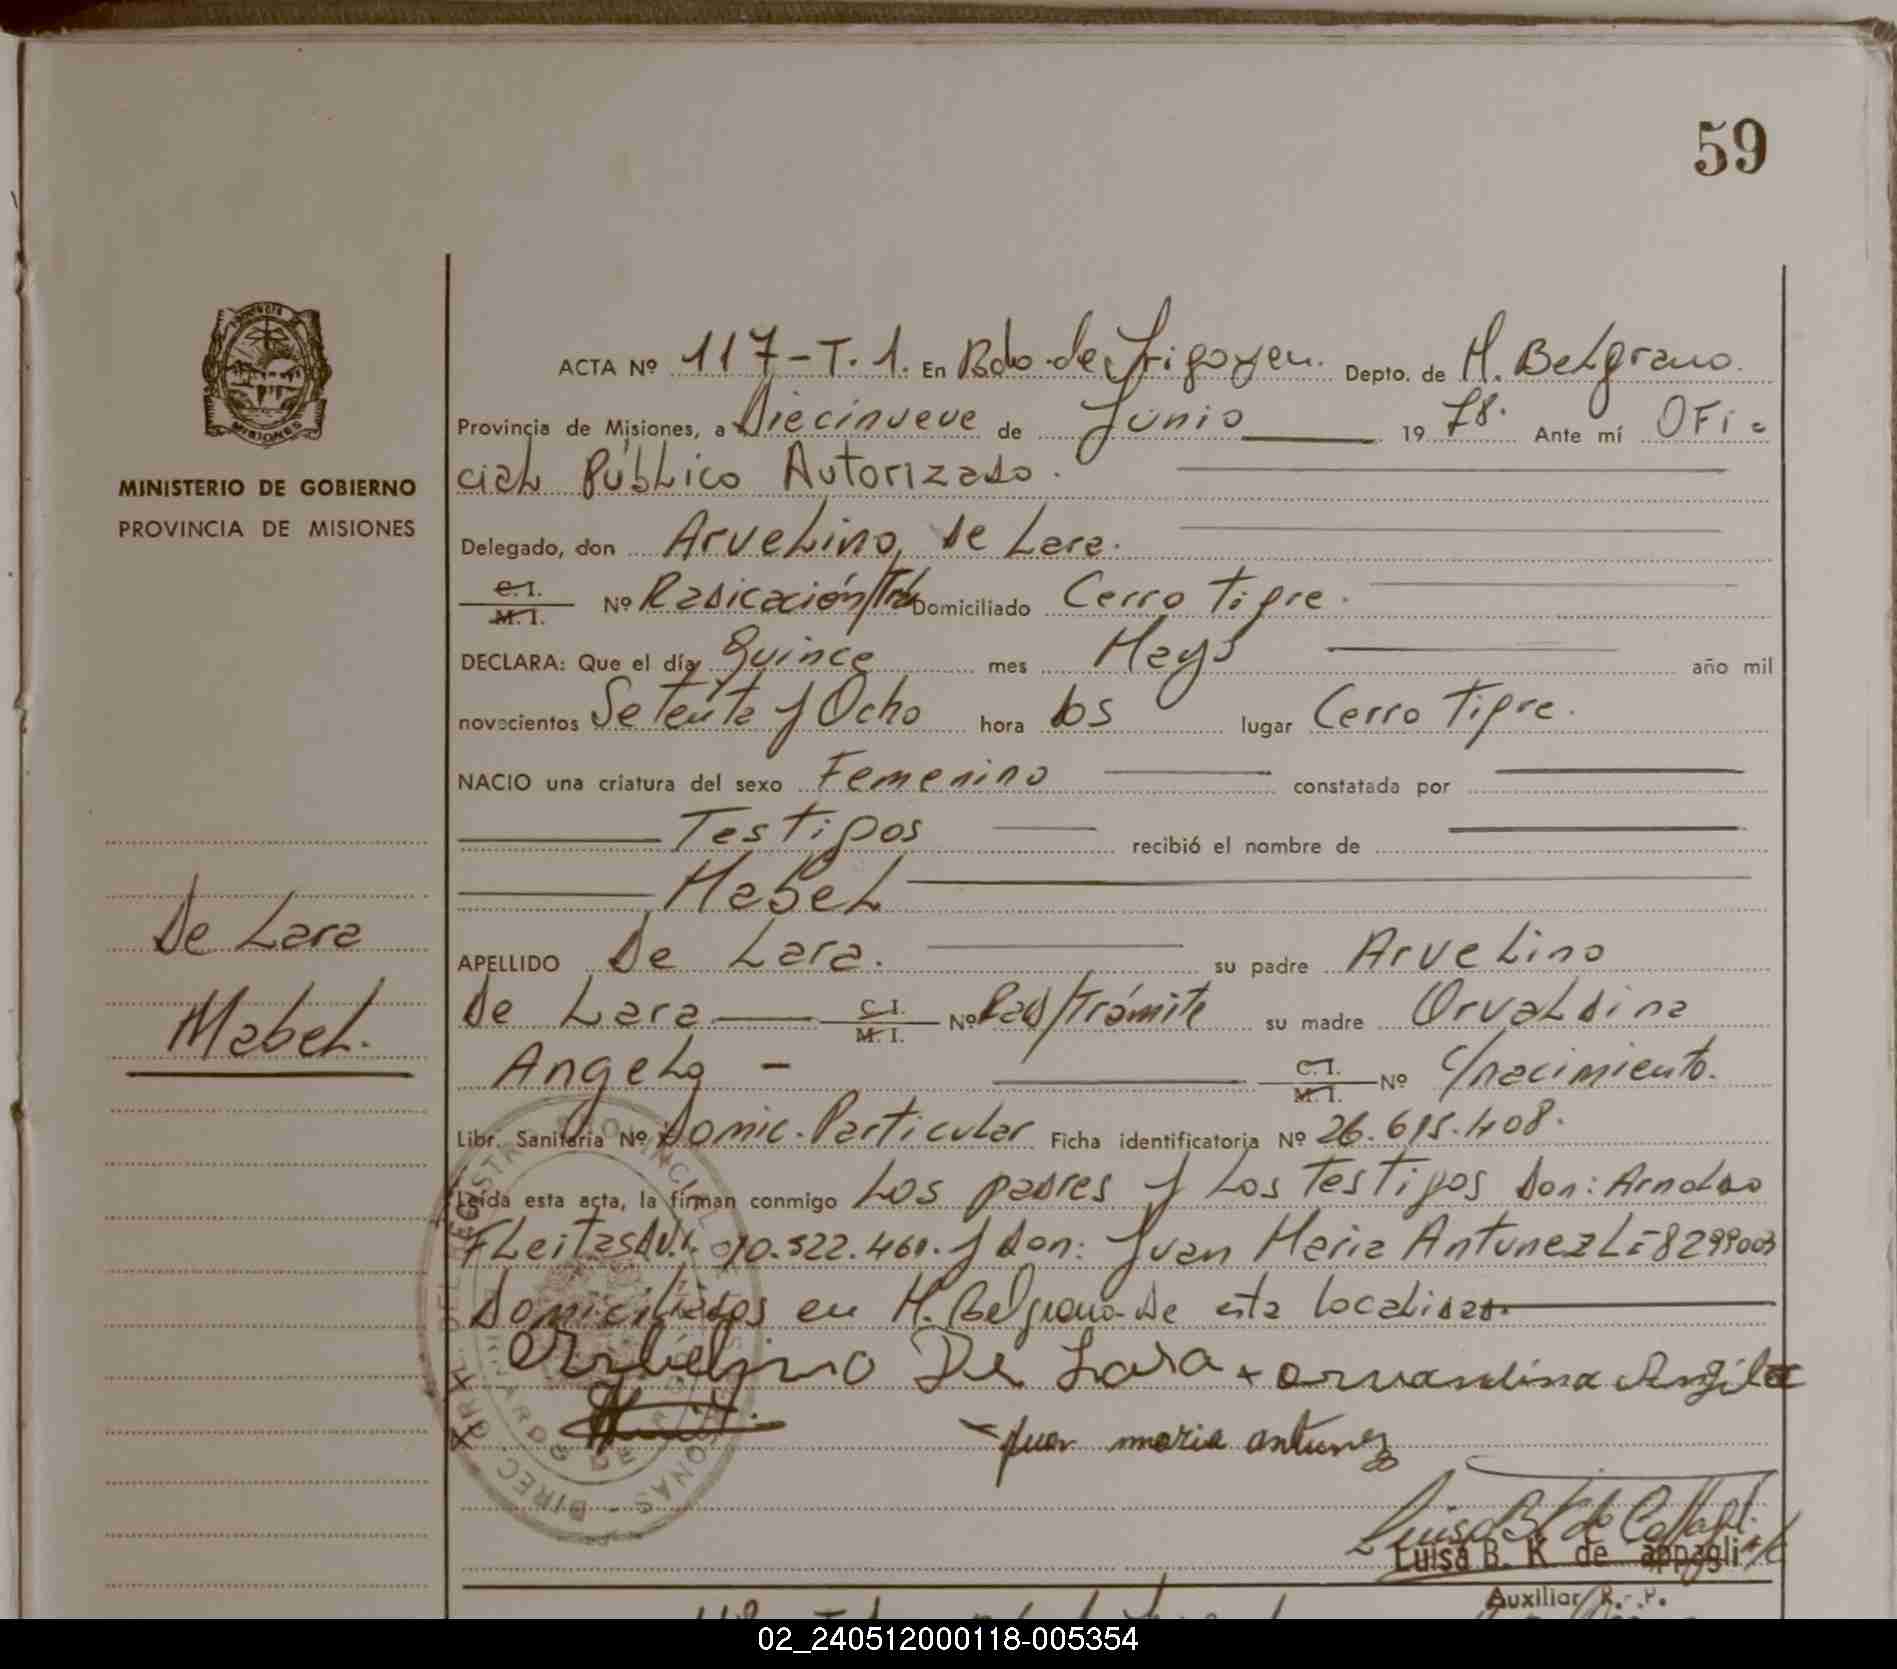 59
ACTA Nº 117-T.1. En Bdo. de Irigoyen. Depto. de M. Belgrano.
Provincia de Misiones, a Diecinueve de Junio 19 78. Ante mí OFi-
cial Público Autorizado.
Delegado, don Arvelino, de Lara.
C. I.
M. I. Nº Radicación/Trá Domiciliado Cerro Tigre.
DECLARA: Que el día Quince mes Mayo año mil
novecientos Setenta y Ocho hora 10s lugar Cerro Tigre.
NACIO una criatura del sexo Femenino constatada por
Testigos recibió el nombre de
Mabel
APELLIDO De Lara. su padre Arvelino
de Lara C. I.
M. I. Nº Rad/Trámite su madre Orvaldina
Angelo - C. I.
M. I. Nº c/nacimiento.
Libr. Sanitaria Nº Domic. Particular Ficha identificatoria Nº 26.615.408.
Leída esta acta, la firman conmigo Los padres y Los Testigos Don: Arnoldo
Fleitas D.N.I. 10.522.461. y don: Juan Maria Antunez L.E 8299003
Domiciliados en M. Belgrano de esta localidad.
Arbelino De Lara + orvandina Angila
Juan maria antunez
Luisa B. K. de
Auxiliar R. P.
MISIONES
MINISTERIO DE GOBIERNO
PROVINCIA DE MISIONES
De Lara
Mabel.
02_240512000118-005354